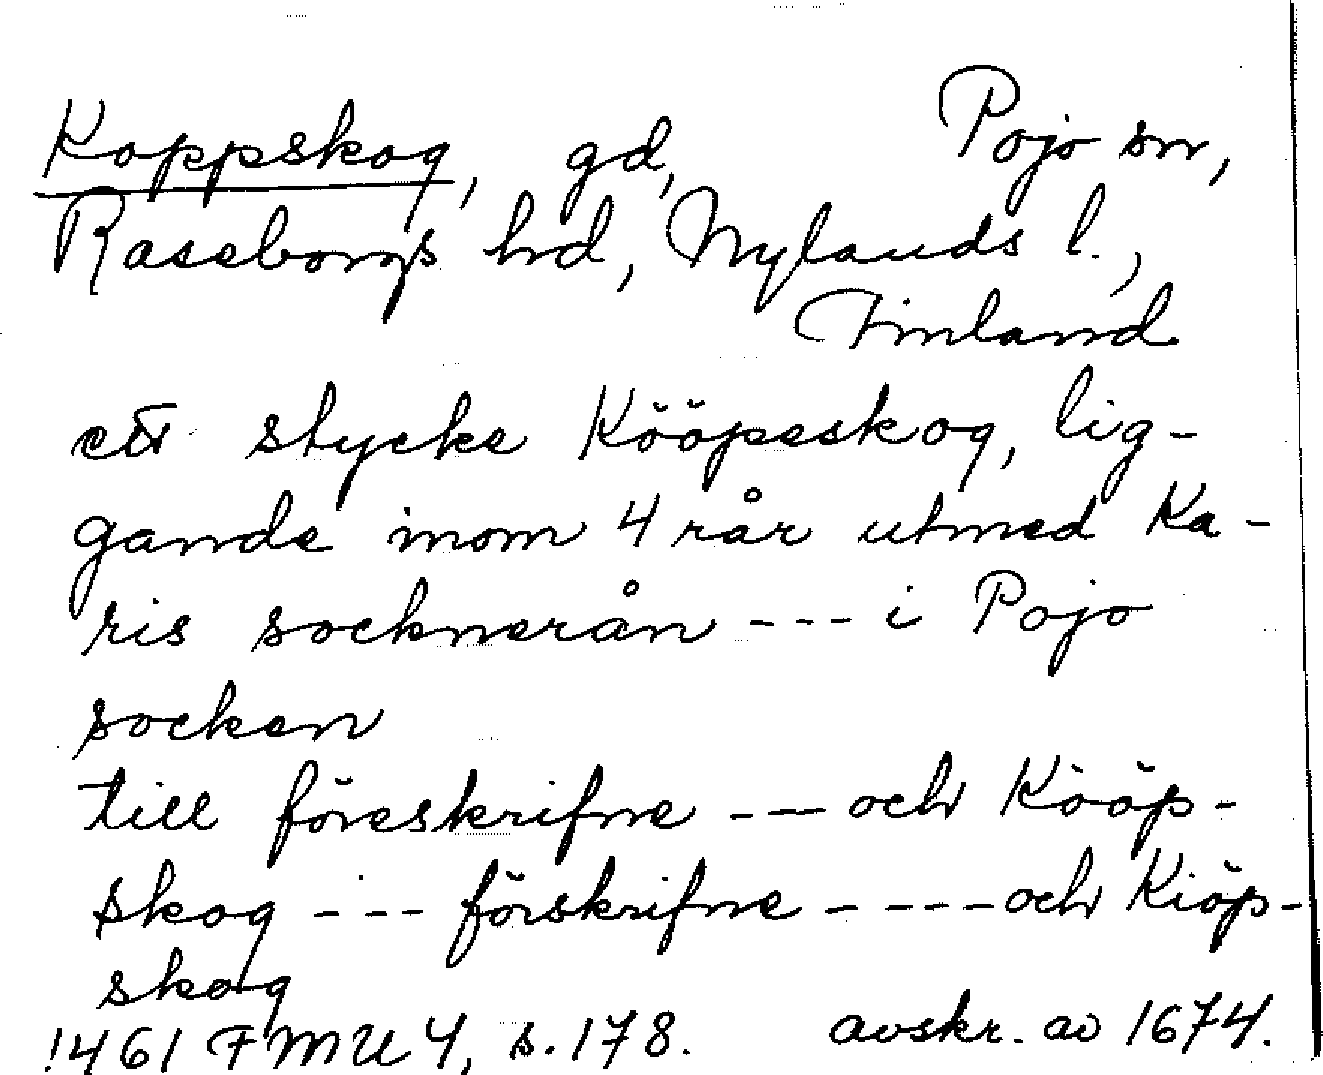 Koppskog, gd, Pojo sn,
Raseborgs hd, Nylands l.,
Finland
ett stycke Kööpeskog, lig-
gande inom 4 rår utmed Ka-
ris socknerån --- i Pojo
socken
till föreskrifne --- och Kööp-
skog --- förskrifne ---- och Kiöp-
skog
1461 FMU 4, s. 178. avskr. av 1674.